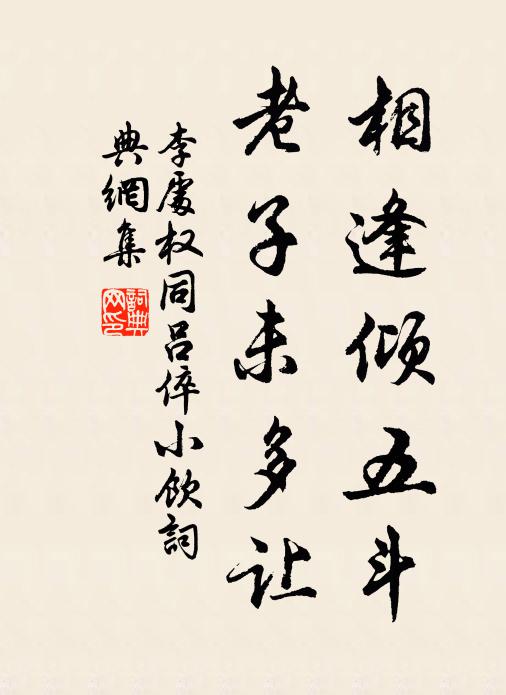 相逢倾五斗
老子未多让
李處权同吕倅小饮詞
典網集
詞典网印